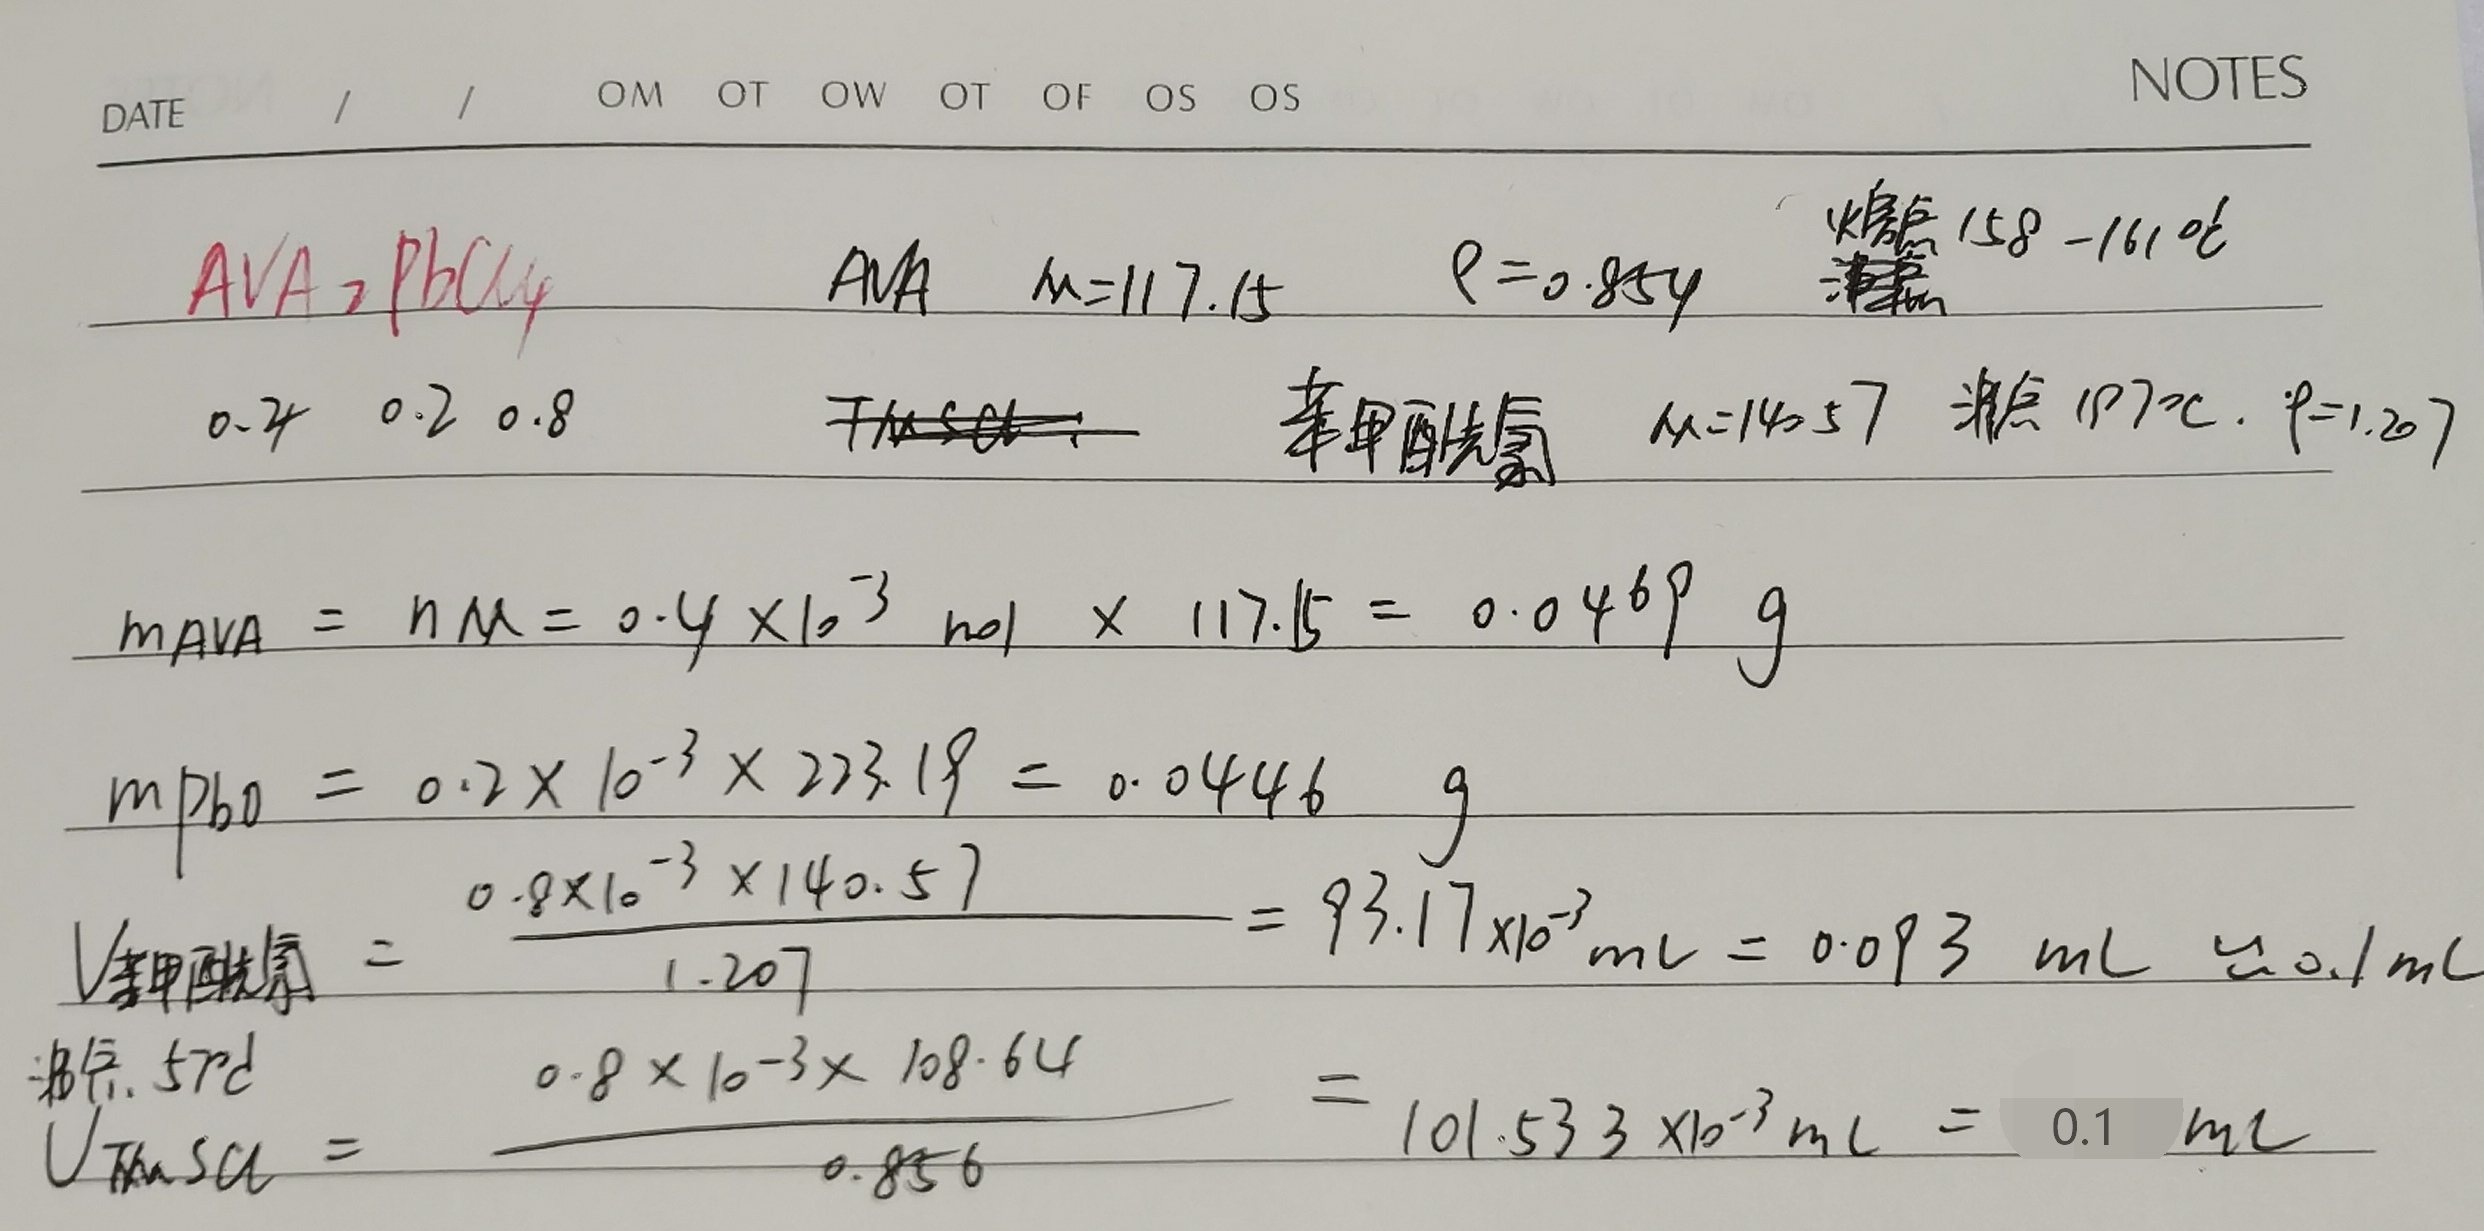 DATE / / OM OT OW OT OF OS OS NOTES
AVA₂PbCl₄ AVA M=117.15 ρ=0.854 熔点 158-161℃
0.4 0.2 0.8 苯甲酰氯 M=140.57 沸点 197℃. ρ=1.207
mAVA = nM = 0.4×10⁻³ mol × 117.15 = 0.0469 g
mPbO = 0.2×10⁻³×223.19 = 0.0446 g
V苯甲酰氯 = 0.8×10⁻³×140.57 / 1.207 = 93.17×10⁻³ mL = 0.093 mL ≈ 0.1 mL
沸点. 57℃
VTMSCl = 0.8×10⁻³×108.64 / 0.856 = 101.533×10⁻³ mL = 0.1 mL